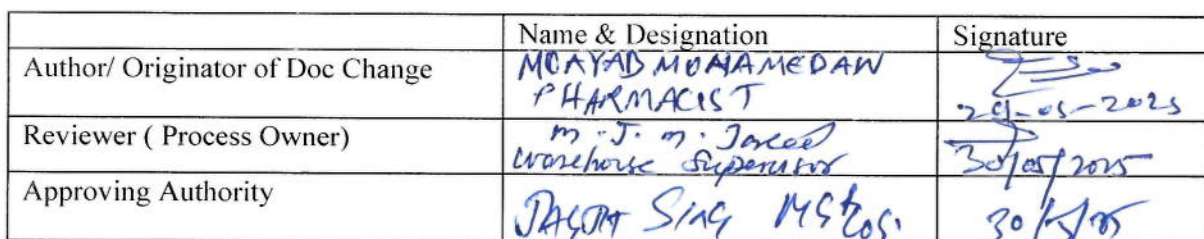 Name & Designation Signature
Author/ Originator of Doc Change MOAYAD MOHAMEDAW
PHARMACIST 29-05-2025
Reviewer ( Process Owner) M.J.M.
warehouse Supervisor 30/05/2025
Approving Authority Sing 30/5/25